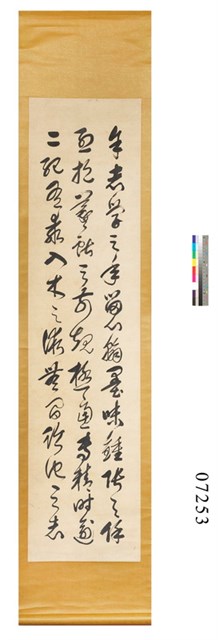 余志學之年留心翰墨味鍾張之餘
烈挹羲獻之前規極慮專精時逾
二紀有乖入木之術無間臨池之志
07253